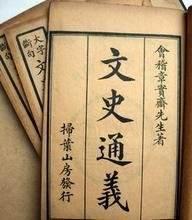 會稽章實齋先生著
文史通義
掃葉山房發行
大字
斷句
文
斷句